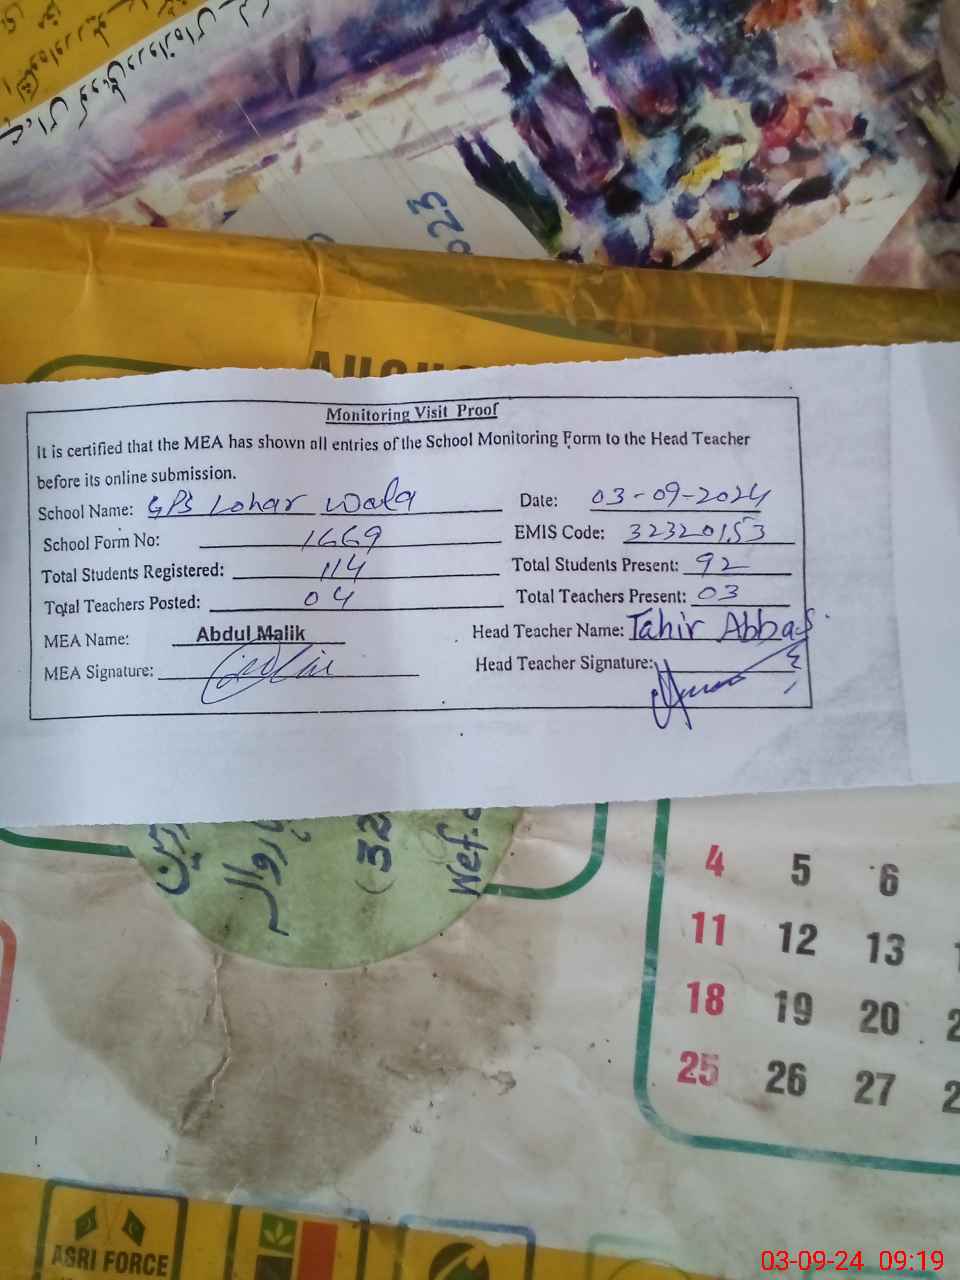 523
Monitoring Visit Proof
It is certified that the MEA has shown all entries of the School Monitoring Form to the Head Teacher
before its online submission.
School Name: GPS Lohar Wala Date: 03-09-2024
School Form No: 1669 EMIS Code: 32320153
Total Students Registered: 114 Total Students Present: 92
Total Teachers Posted: 04 Total Teachers Present: 03
MEA Name: Abdul Malik Head Teacher Name: Tahir Abbas
MEA Signature: Head Teacher Signature:
(32
Wef.
4 5 6
11 12 13
18 19 20
25 26 27
AGRI FORCE
03-09-24 09:19